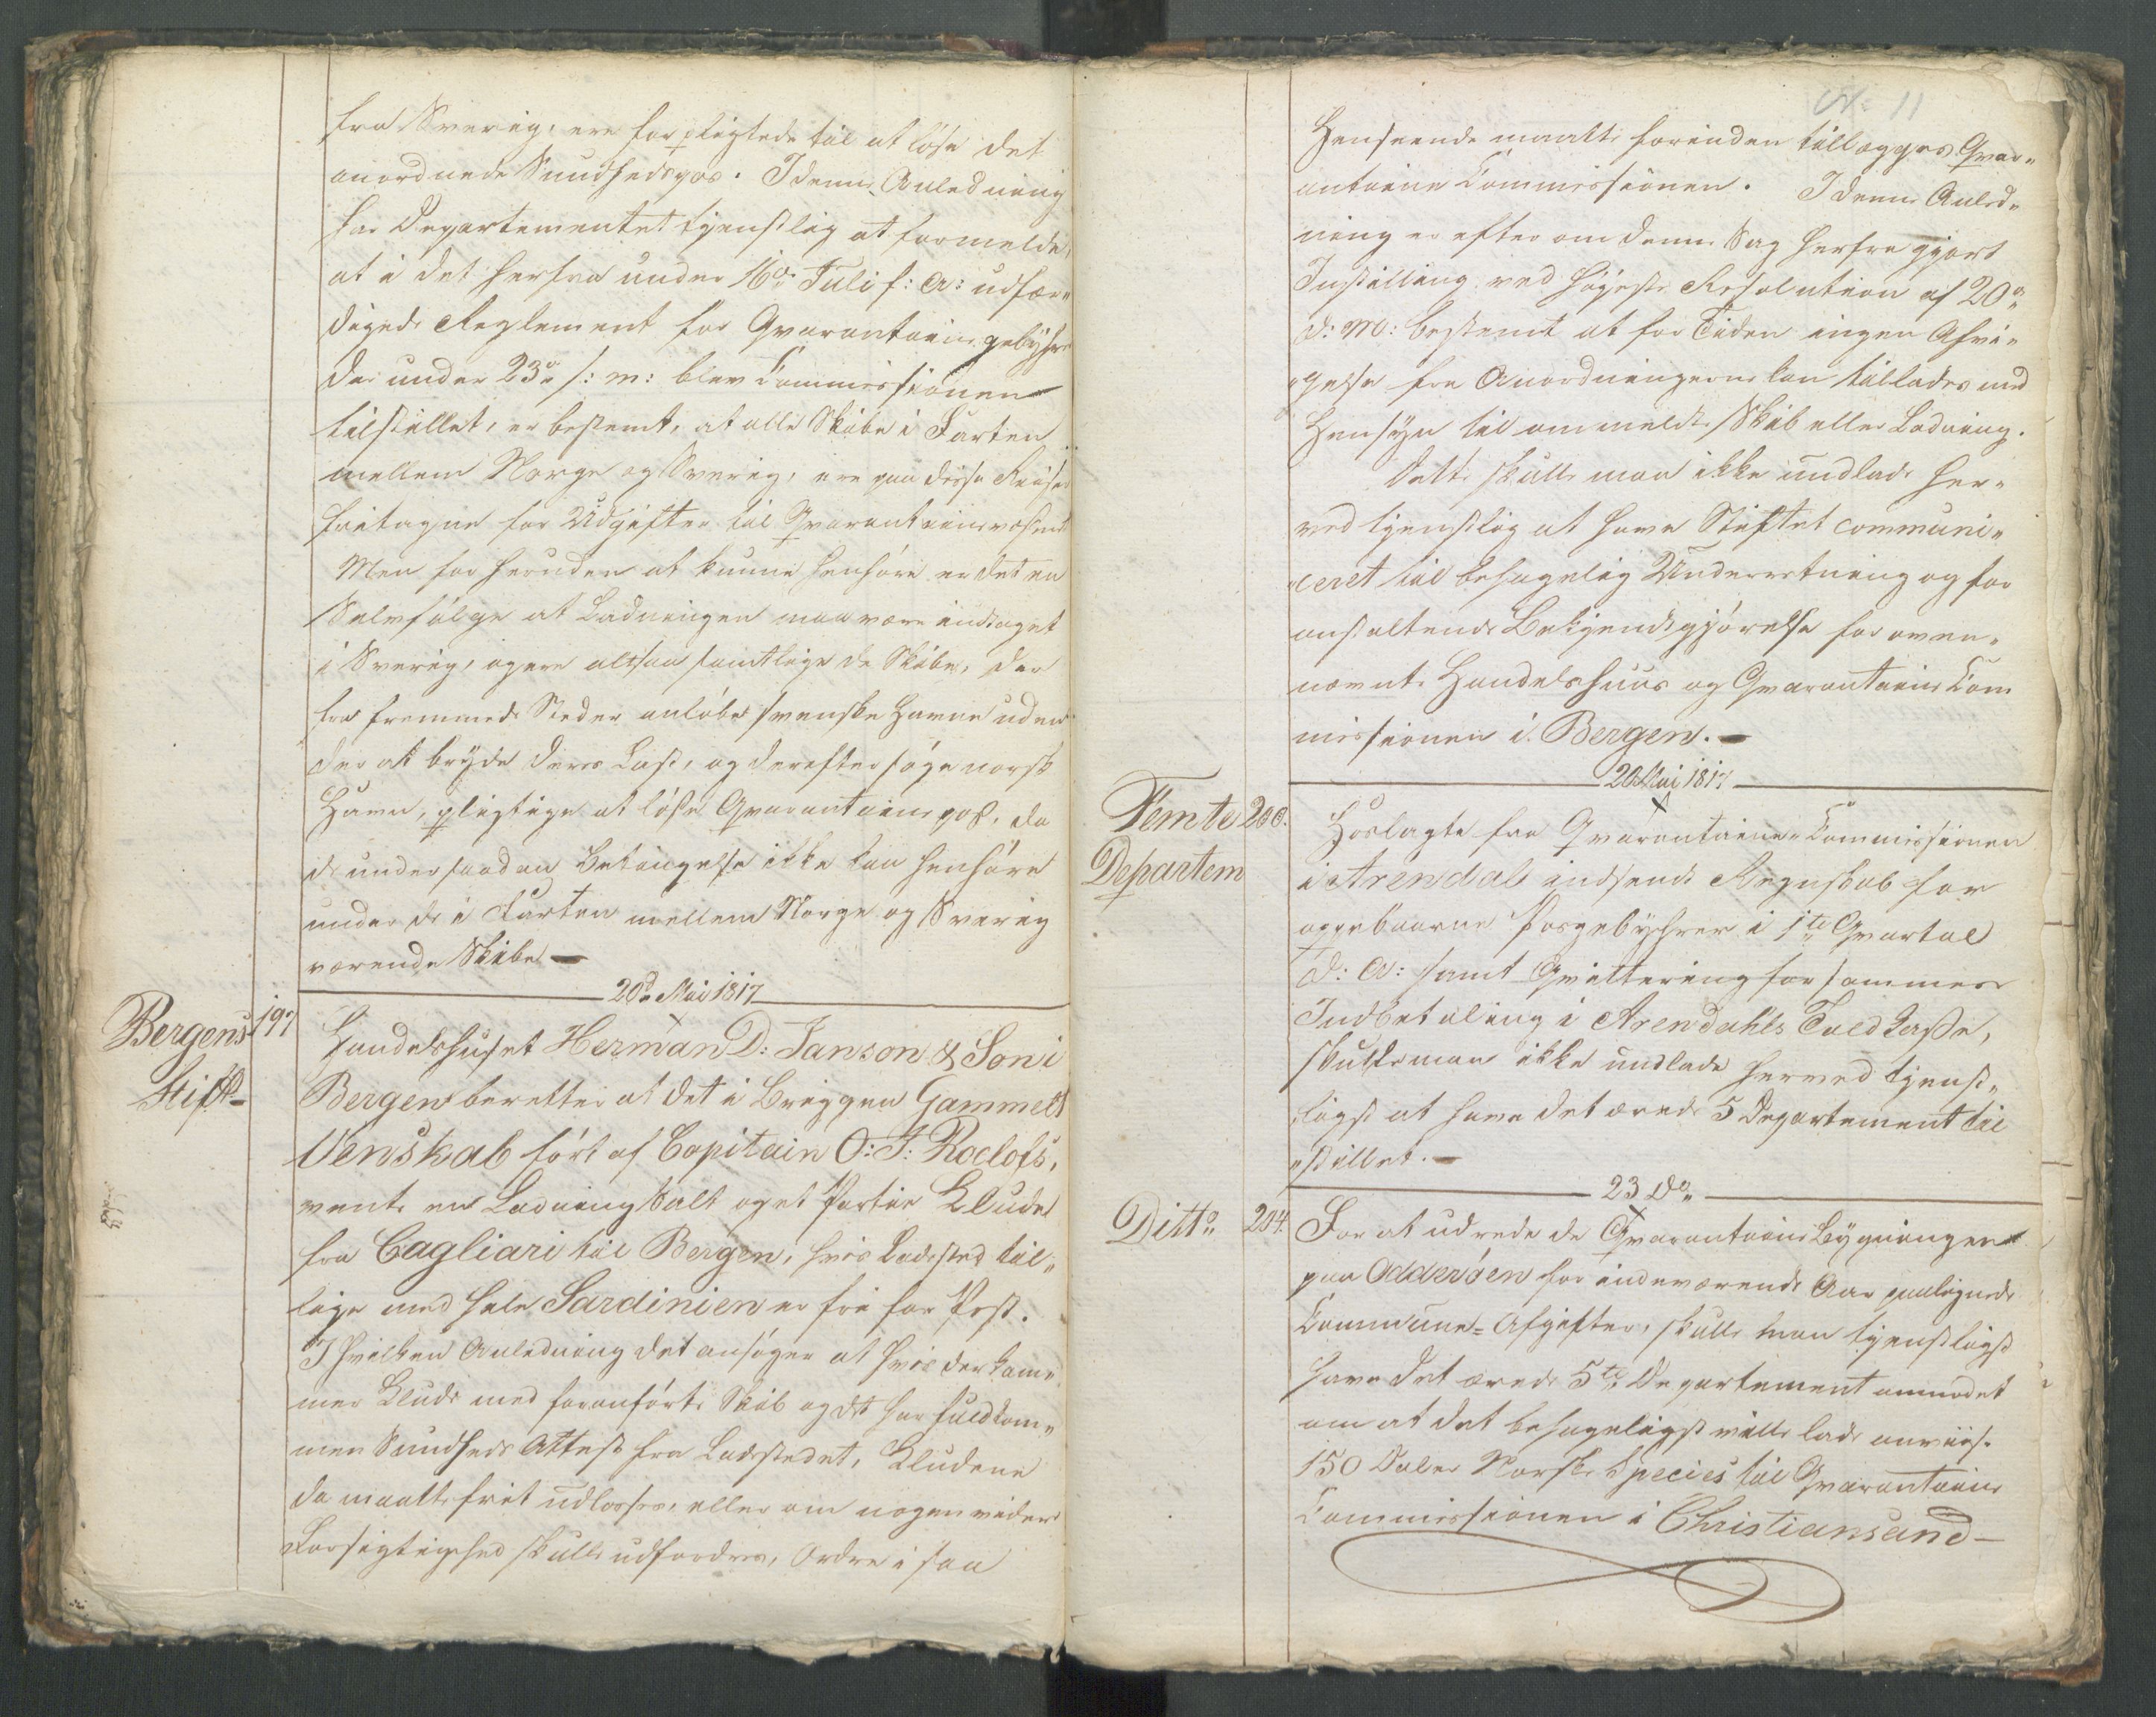 fra Sverig, ere forpligtede til at löse det
anordnede Sundhedspas. I denne Anledning
har Departementet tjenstlig at formelde,
at i det herfra under 16de Juli f: A: udfær„
digede Reglement for Qvarantaine gebyhrer
der under 23de s: m: blev Commissionen
tilstillet, er bestemt, at alle Skibe i Farten
mellem Norge og Sverig, ere paa disse Reiser
fritagne for Udgifter til Qvarantainevæsenet
Men for herunder at kunne henføre er det en
Selvfølge at Ladningen maa være indtaget
i Sverig, og ere altsaa samtlige de Skibe, der
fra fremmede Steder anløbe svenske Havne uden
der at bryde deres Last, og derefter søge norsk
Havn, pligtige at löse Qvarantaine pas, da
de under saadan Betingelse ikke kan henføres
under de i Farten mellem Norge og Sverig
værende Skibe —
20de Mai 1817
Bergens 197
Stift
Handelshuset Herman D: Janson & Son i
Bergen beretter at det i Briggen Gammelt
Venskab ført af Capitain O: J: Roelofs,
vente en Ladning Salt og et Partie Klude
fra Cagliari til Bergen, hvis Ladested til„
lige med hele Sardinien er fri for Pest.
I hvilken Anledning det ansøger at hvis der kom„
mer Klude med foranførte Skib og det har fuldkom„
men Sundheds Attest fra Ladestedet, Kludene
da maatte frit udlosses, eller om nogen videre
Forsigtighed skulle udfordres, Ordre i saa
No 11
Henseende maatte forinden tillægges Qvar„
antaine Commissionen. I denne Anled„
ning er efter om denne Sag herfra gjort
Instilling ved høyeste Resolution af 20de
d: M: bestemt at for Tiden ingen Afvi„
gelse fra Anordningerne kan tillades med
Hensyn til ommeldte Skib eller Ladning.
Dette skulle man ikke undlade her„
ved tjenstlig at have Stiftet communi„
ceret til behagelig Underretning og for
anstaltende Bekjendtgjørelse for oven„
nævnte Handelshuus og Qvarantaine Com
missionen i Bergen. —
20 Mai 1817
Femte 200.
Departem
Hoslagte fra Qvarantaine-Commissionen
i Arendal indsendte Regnskab for
oppebaarne Pasgebyhrer i 1te Qvartal
d: A: samt Qvittering for sammes
Indbetaling i Arendahls Toldkasse,
skulle man ikke undlade herved tjenst„
ligst at have det ærede 5 Departement til
„stillet. —
23 do
Ditto 204.
For at udrede de Qvarantaine Bygninger
paa Odderøen for indeværende Aar paalignede
Commune=Afgifter, skulle man tjenstligst
have det ærede 5te Departement anmodet
om at det behageligst ville lade anviise
150 Daler Norske Species til Qvarantaine
Commissionen i Christiansand —